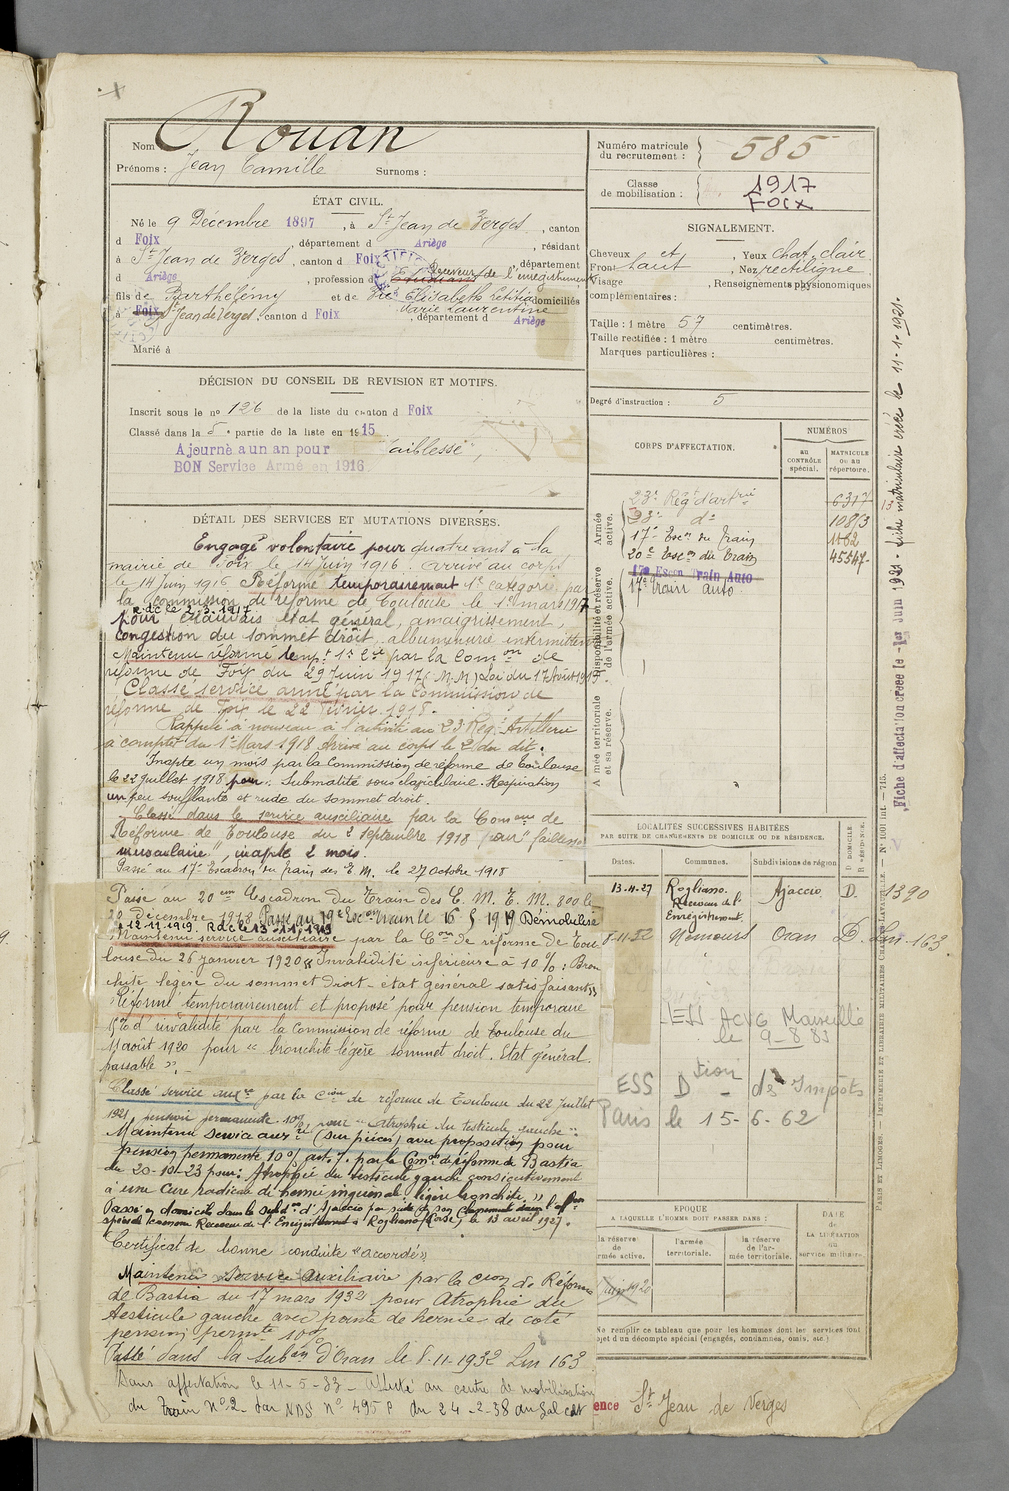 Nom Rouan
Prénoms : Jean Camille Surnoms :
ÉTAT CIVIL.
Né le 9 Décembre 1897, à St Jean de Verges, canton
d Foix, département d Ariège, résidant
à St Jean de Verges, canton d Foix, département
d Ariège, profession d Etudiant Receveur de l'enregistrement
fils de Barthélémy et de Elisabeth Letitia domiciliés
Marie Laurentine
à Foix St Jean de Verges, canton d Foix, département d Ariège
Marié à
DÉCISION DU CONSEIL DE REVISION ET MOTIFS.
Inscrit sous le no 126 de la liste du canton d Foix
Classé dans la 5e partie de la liste en 1915
Ajourné a un an pour faiblesse",
BON Service Armé en 1916
DÉTAIL DES SERVICES ET MUTATIONS DIVERSES.
Engagé volontaire pour quatre ans à la
mairie de Foix le 14 Juin 1916. Arrivé au corps
le 14 Juin 1916 Réformé temporairement 1e catégorie par
la commission de réforme de Toulouse le 1er mars 1917
R.d.c. le 2.3.1917
pour mauvais état général, amaigrissement,
congestion du sommet droit, albuminurie intermittente
Maintenu réformé temp.t 1e Cie par la Comon de
réforme de Foix du 29 Juin 1917 (M.M.) Loi du 17 Août 1915.
Classé service armé par la Commission de
réforme de Foix le 22 Février 1918.
Rappelé à nouveau à l'activité au 23 Rég. Artillerie
à compter du 1er Mars 1918 Arrivé au corps le 2 du dit.
Inapte un mois par la Commission de réforme de Toulouse
le 22 Juillet 1918 pour. Submatité sous claviculaire. Respiration
un peu soufflante et rude du sommet droit.
Classé dans le service auxiliaire par la Comon de
Réforme de Toulouse du 2 Septembre 1918 pour "faiblesse
musculaire", inapte 2 mois.
Passé au 17e Escadron du train des E.M. le 27 octobre 1918
Passé au 20eme Escadron du Train des E. M. T. E. M. 800 le
20 Décembre 1918. Passé au 19e Escon train le 16 8 1919 Démobilisé
le 12.11.1919. R.d.c le 13-11-1919
Maintenu service auxiliaire par la Con de réforme de Tou
louse du 26 janvier 1920 "Invalidité inférieure à 10% : Bron
chite légère du sommet droit - état général satisfaisant"
Réformé temporairement et proposé pour pension temporaire
15% d'invalidité par la Commission de réforme de Toulouse du
11 août 1920 pour "bronchite légère sommet droit. Etat général
passable".
Classé service auxre par la Cion de réforme de Toulouse du 22 Juillet
1921, pension permanente 10% pour "atrophie du testicule gauche".
Maintenu service auxre (sur pièces) avec proposition pour
pension permanente 10% art. 7. par la Comon de réforme de Bastia
du 20-10-23 pour: Atrophie du testicule gauche consécutivement
à une cure radicale de hernie inguinale: légère bronchite."
Passé en domicile dans la subdon d'Ajaccio par suite de son classement dans l'affon
spéciale comme Receveur de l'Enregistrement à Rogliano (Corse) le 13 avril 1927.
Certificat de bonne conduite "accordé"
Maintenu service auxiliaire par la Cion de Réforme
de Bastia du 17 mars 1932 pour Atrophie du
testicule gauche avec pointe de hernie de coté
pension permte 10%
Passé dans la subon d'Oran le 8-11-1932 Lm 163
Sans affectation le 11-5-33 - Affecté au centre de mobilisation
du Train No 2 par NDS no 495 P du 24-2-38 du Gal cdt
Numéro matricule du recrutement : 585
Classe de mobilisation : 1917
FOIX
SIGNALEMENT.
Cheveux et, Yeux chat. clair.
Front haut, Nez rectiligne
Visage, Renseignements physionomiques
complémentaires :
Taille : 1 mètre 57 centimètres.
Taille rectifiée : 1 mètre centimètres.
Marques particulières :
Degré d'instruction : 5
CORPS D'AFFECTATION.
NUMÉROS
au CONTRÔLE spécial.
MATRICULE ou au répertoire.
Armée active.
23e Régt d'artrie 6317
23e do 10813
17e Escn du Train 1162
20e Escon du Train 45547
17e Escon Train Auto
17e train auto.
Disponibilité et réserve de l'armée active.
Armée territoriale et sa réserve.
LOCALITÉS SUCCESSIVES HABITÉES
PAR SUITE DE CHANGEMENTS DE DOMICILE OU DE RÉSIDENCE.
Dates. Communes. Subdivisions de région D DOMICILE. R RÉSIDENCE.
13-4-27 Rogliano. Ajaccio D. 1390
Receveur de l'
Enregistrement.
8-11-32 Nemours Oran D. Lm 163
ESS ACVG Marseille
le 9-8-83
ESS Dtion des Impôts
Paris le 15-6-62
EPOQUE
A LAQUELLE L'HOMME DOIT PASSER DANS :
la réserve de l'armée active.
l'armée territoriale.
la réserve de l'armée territoriale.
DATE DE LA LIBÉRATION du service militaire.
Ne remplir ce tableau que pour les hommes dont les services font
l'objet d'un décompte spécial (engagés, condamnés, omis, etc.)
St Jean de Verges
Fiche d'affectation créée le -1er Juin 1921 - fiche matriculaire créée le 11-1-1921.
PARIS ET LIMOGES. — IMPRIMERIE ET LIBRAIRIE MILITAIRES CHARLES-LAVAUZELLE. — No 1001 Int. — 715.